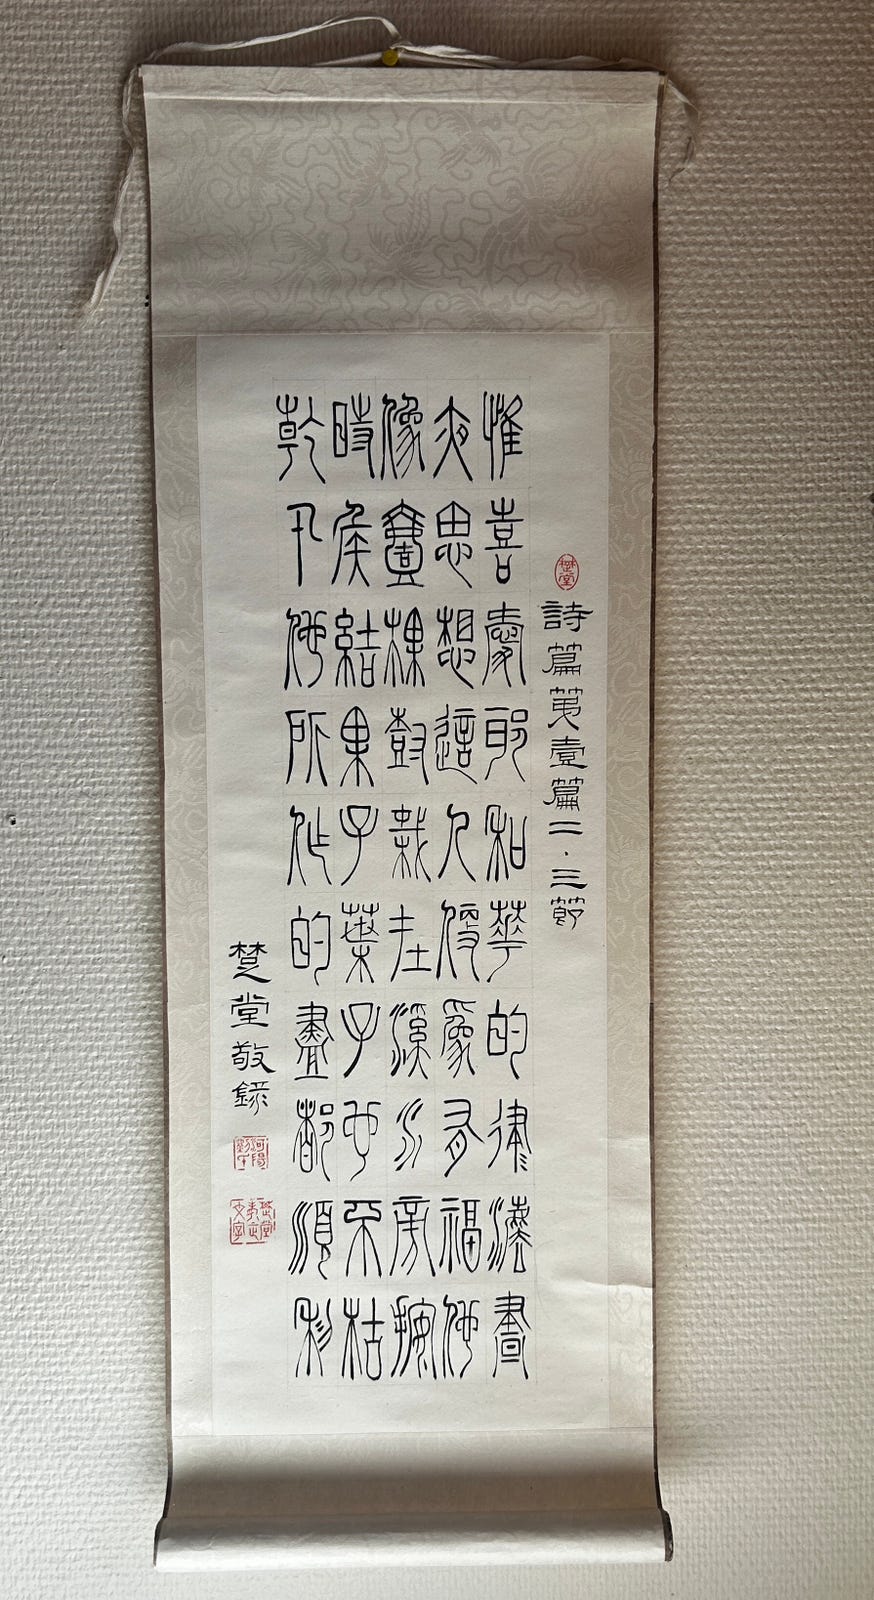 楚堂
詩篇第壹篇二·三節
惟喜愛耶和華的律灋晝
夜思想這人便為有福他
像壹棵樹栽在溪水旁按
時候結果子葉子也不枯
乾凡他所作的盡都順利
楚堂敬錄